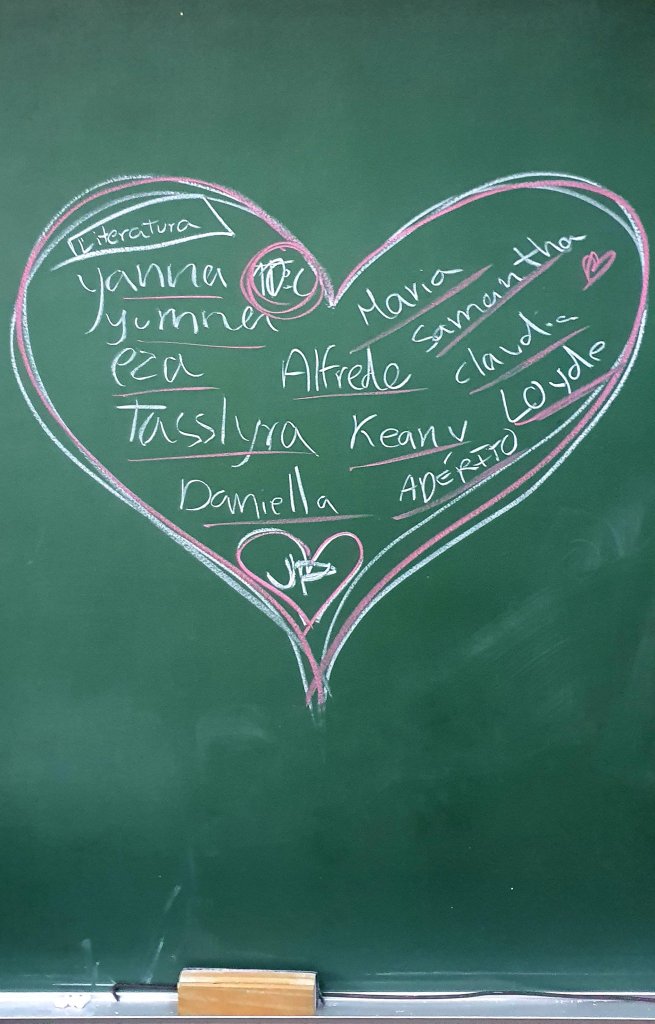 Literatura
Yanna
Yumna
eza
Tasslyra
Daniella
Alfrede
Keany
Maria
Samantha
Claudia
Loyde
ADÉRITO